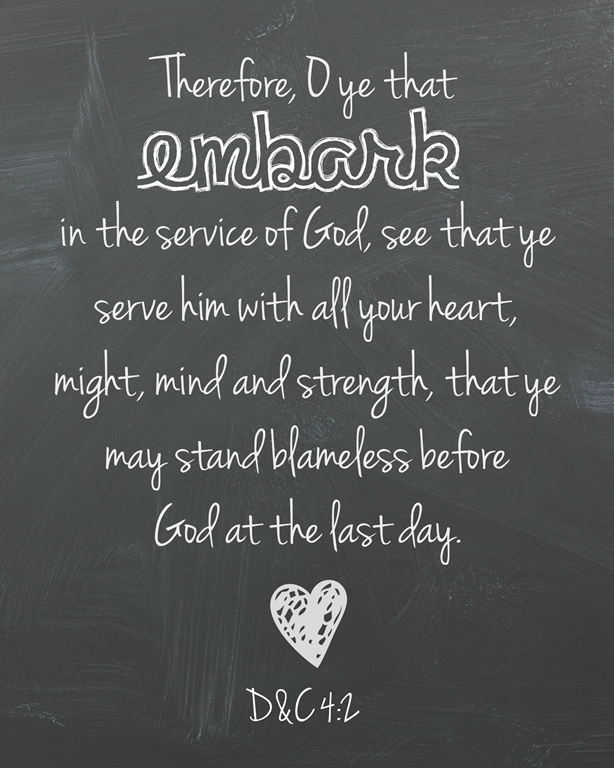 Therefore, O ye that
embark
in the service of God, see that ye
serve him with all your heart,
might, mind and strength, that ye
may stand blameless before
God at the last day.
D&C 4:2